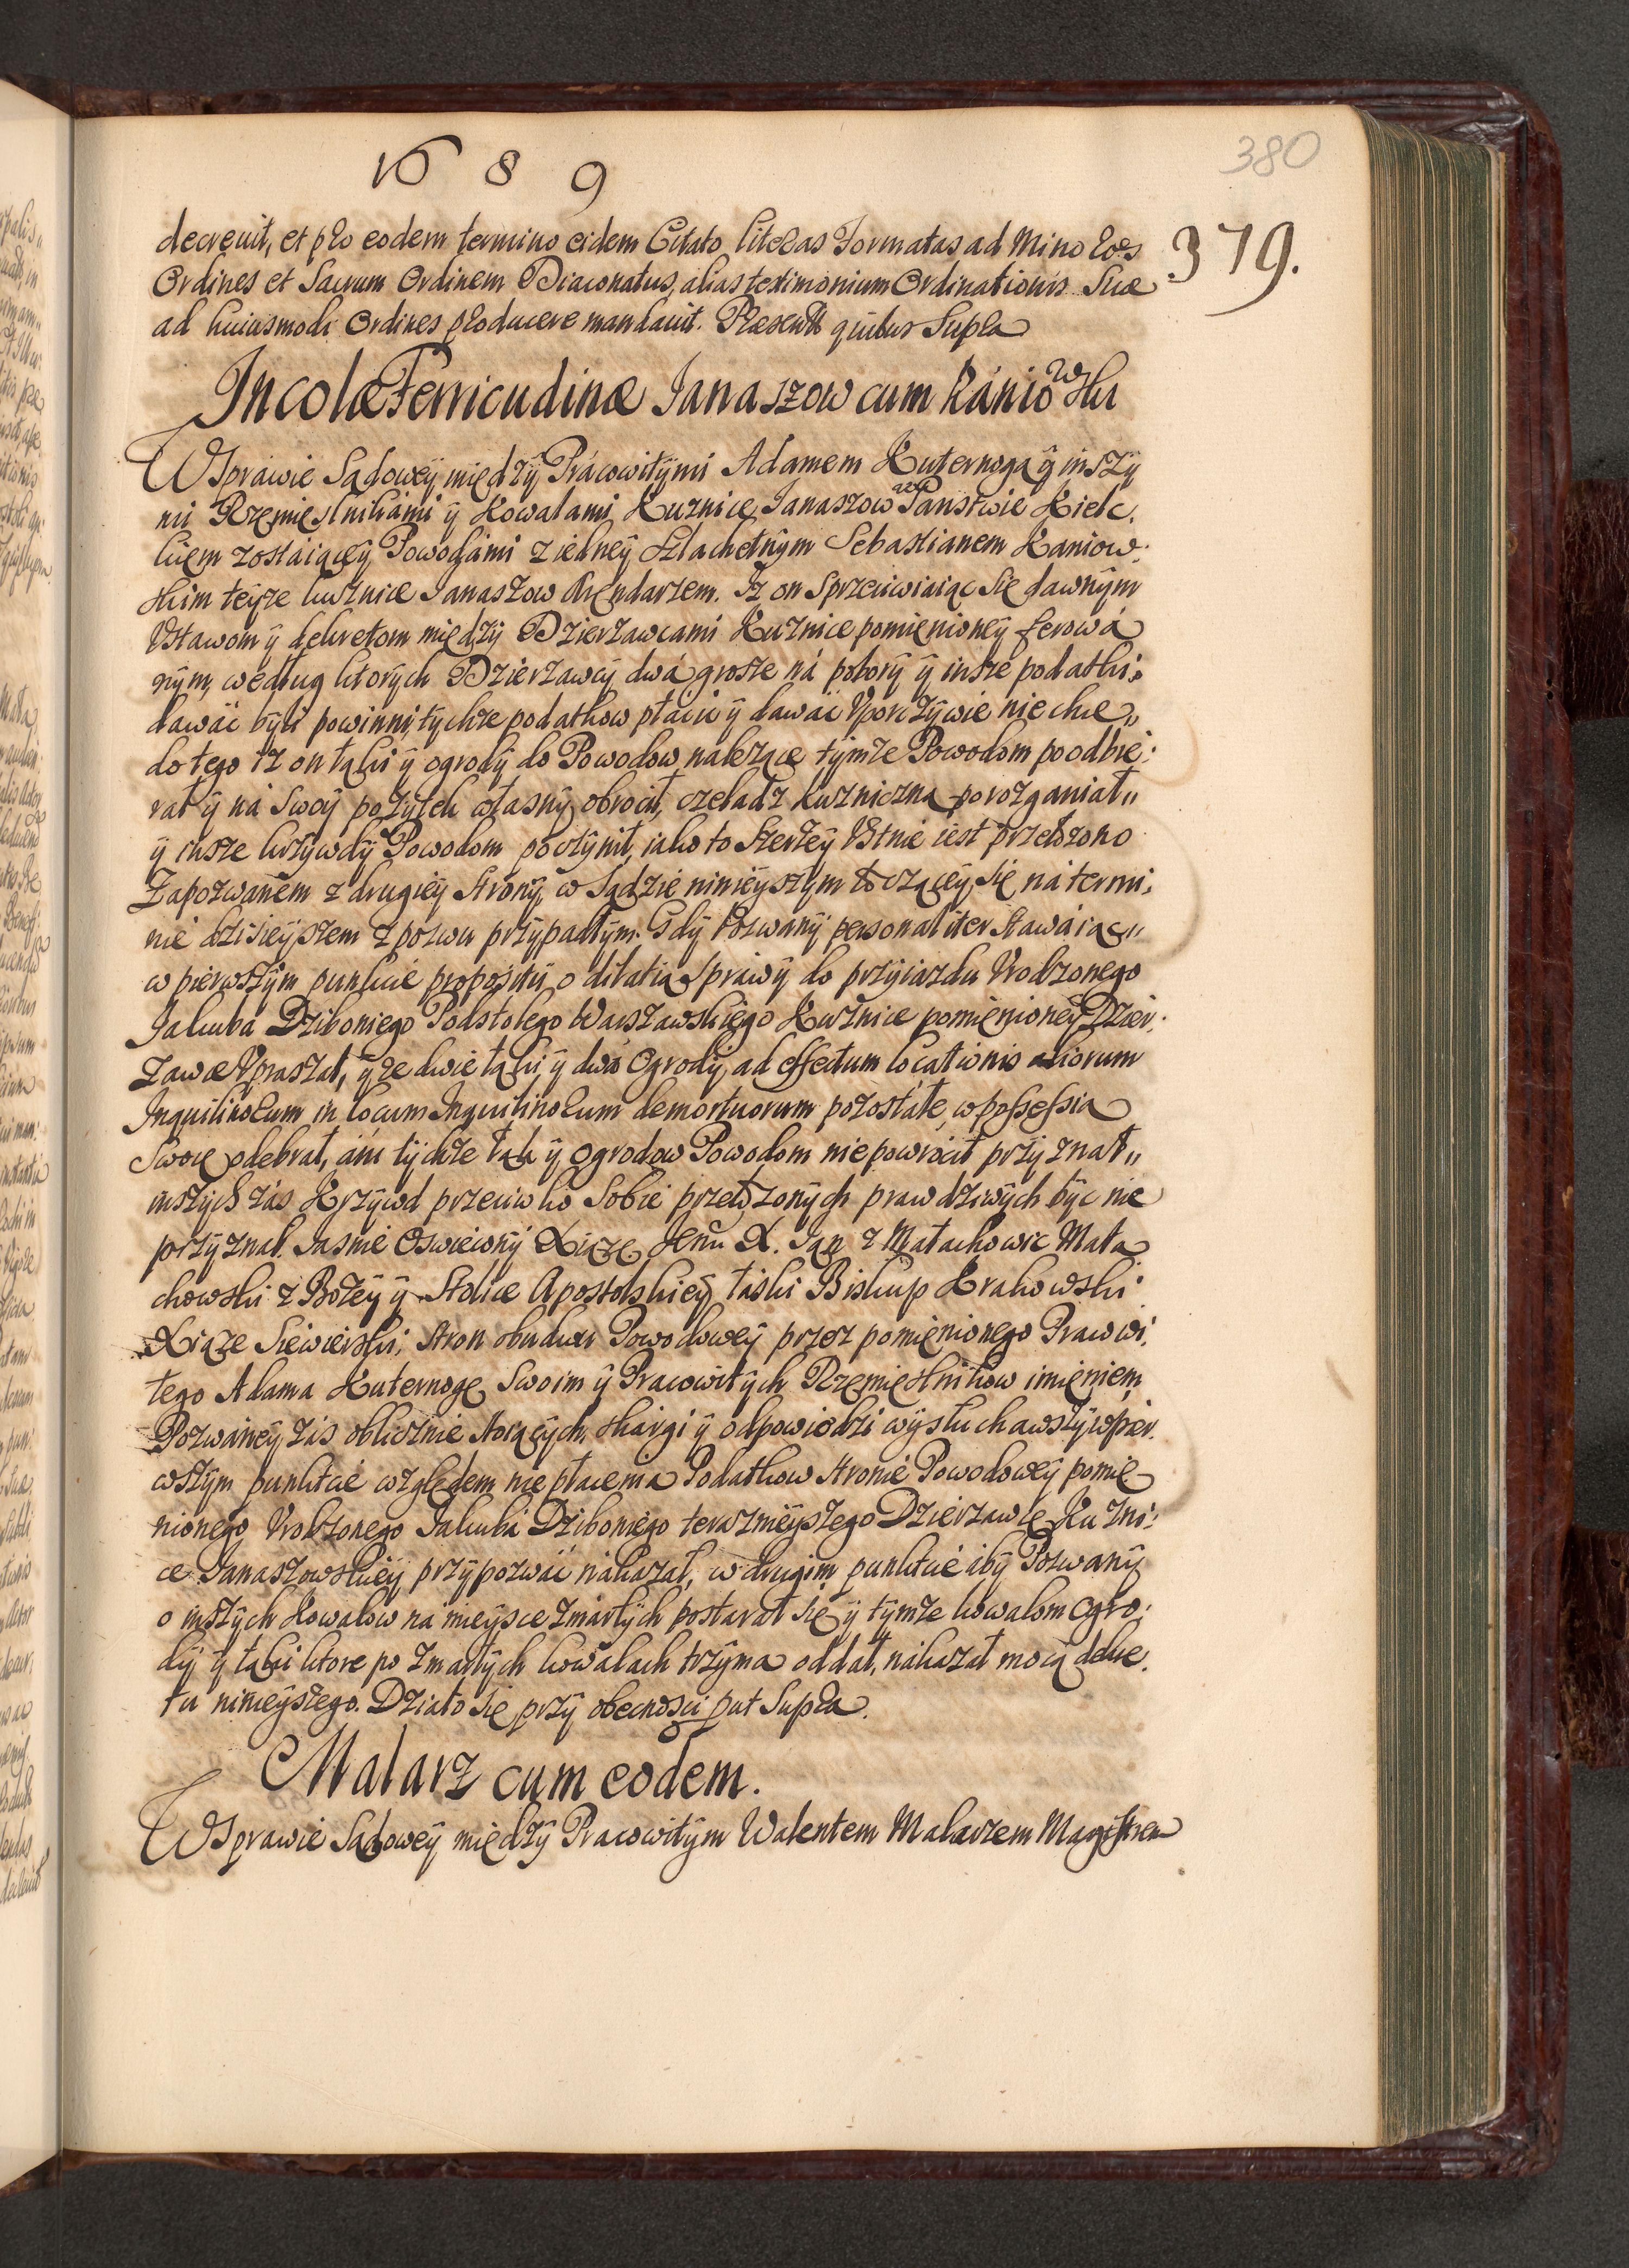 1689
380
379.
decreuit, et pro eodem termino eidem Citato literas Formatas ad Minores
Ordines et Sacrum Ordinem Diaconatus, alias testimonium Ordinationis Suae
ad huiusmodi Ordines producere mandauit. Praesentt quibus Supra
Incolae Ferricudinae Janaszow cum Kániowski
W Spráwie Sądoweÿ między Prácowitÿmi Adamem Kuternogą ÿ inszÿ
mi Rzemięslnikámi ÿ Kowalami Kuznice Janaszow Państwie Kielc.
kiem zostáiąceÿ Powodámi z iedneÿ Szlachetnÿm Sebastianem Kaniow.
skim teÿze kuznice Janaszow Arendarzem. Iz on Sprzeciwiaiąc Się dawnÿm
Vstawom ÿ dekretom międzÿ Dzierzawcami Kuznice pomięnioneÿ ferowá
nÿm, według ktorÿch Dzierzawcÿ dwá grosze ná poborÿ ÿ insze podatki
dawáć bÿli powinni, tÿchze podatkow płacić ÿ dawáć Vporczÿwie nie chce„
do tego iz on łąki ÿ ogrodÿ do Powodow nalezące tÿmze Powodom poodbie:
rał ÿ ná Swoÿ pozÿtek własnÿ obrocił, czeladz kuzniczną porozganiał„
ÿ insze krzÿwdÿ Powodom poczÿnił, iako to Szerzeÿ Vstnie iest przełozono
Zapozwánem z drugieÿ Stronÿ, w Sądzie ninieÿszÿm toczącéÿ się ná termi,
nie dzisieÿszem z pozwu przÿpadłÿm. Gdÿ Pozwanÿ personaliter Stawáiąc„
w pierwszÿm punkcié propositÿ o dilatią Sprawÿ do przÿiazdu Vrodzonego
Jakubá Dziboniego Podstolego Warszawskiego Kuznice pomięnioneÿ Dzier.
zawcé Vpraszał, ÿ ze dwie łąki ÿ dwá Ogrodÿ, ad effectum locationis aliorum
Inquilinorum in locum Inquilinorum demortuorum pozostáłe, w possessią
Swoię odebrał, áni tÿchze łąk ÿ ogrodow Powodom nie powrócił przÿznał„
inszÿch zás Krzÿwd przeciwko Sobie przełozonÿch prawdziwÿch bÿć nie
przÿznał. Jasnie Oswieconÿ Xiąze Jemć X. Jan z Małachowic Mała
chowski z Bozeÿ ÿ Stolice Apostolskieÿ łaski Biskup Krakowski
Xiąze Siewierski, Stron obudwu Powodoweÿ przez pomięnionego Pracowi,
tego Adama Kuternogę Swoim ÿ Pracowitÿch Rzemięslnikow imieniem
Pozwáneÿ zás oblicznie Stoiącÿch, Skárgi ÿ odpowiedzi wÿsłuchawszÿ w pier.
wszÿm punktcié względem nie płacenia Podatkow Stronié Powodoweÿ pomię
nionego Vrodzonego Jakubá Dziboniego terazneÿszego Dzierzawcę Kuzni:
ce Janaszowskieÿ przÿpozwáć nákazał, w drugim punktcié ábÿ Pozwanÿ
o inszÿch Kowalow na mieÿsce zmárłÿch postarał się ÿ tÿmze kowalom Ogro:
dÿ ÿ łąki ktore po zmarłÿch kowalach trzÿma oddał, nákazał mocą dekre.
tu ninieÿszego. Działo się przÿ obecnosci put Supra.
Malarz cum eodem.
W Sprawie Sądoweÿ międzÿ Pracowitÿm Walentem Malarzem Magistrem